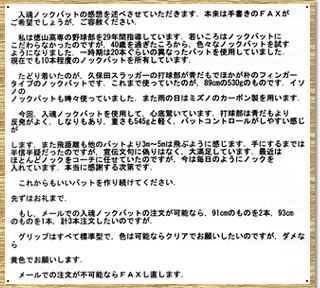 入魂ノックバットの感想を述べさせていただきます。本来は手書きのＦＡＸが
ご希望でしょうが、ご容赦ください。
私は徳山高専の野球部を29年間指導しています。若いころはノックバットに
こだわりなかったのですが、40歳を過ぎたころから、色々なノックバットを試す
ようになりました。一時期は20本ぐらいの異なったバットを使用していました。
現在でも10本程度のノックバットを所有しています。
たどり着いたのが、久保田スラッガーの打球部が青だもでほかが朴のフィンガー
タイプのノックバットです。これまで使っていたのが、89cmの530gのものです。イソノ
のノックバットも時々使っていました。また雨の日はミズノのカーボン製を用います。
今回、入魂ノックバットを使用して、心底驚いています。打球部は青だもより
反発がよく、しなりもあり、重さも545gと軽く、バットコントロールがしやすい感じ
が
します。また飛距離も他のバットより3m～5mは飛ぶように感じます。手にするまでは
半信半疑だったのですが、宣伝文句に偽りはなく、大満足しています。最近は
ほとんどノックをコーチに任せていたのですが、今は毎日のようにノックを
入れています。本当に感謝する次第です。
これからもいいバットを作り続けてください。
先ずはお礼まで。
もし、メールでの入魂ノックバットの注文が可能なら、91cmのものを2本、93cm
のものを1本、計3本注文したいのですが、
グリップはすべて標準型で、色は可能ならクリアでお願いしたいのですが、ダメな
ら
黄色でお願いします。
メールでの注文が不可能ならＦＡＸし直します。